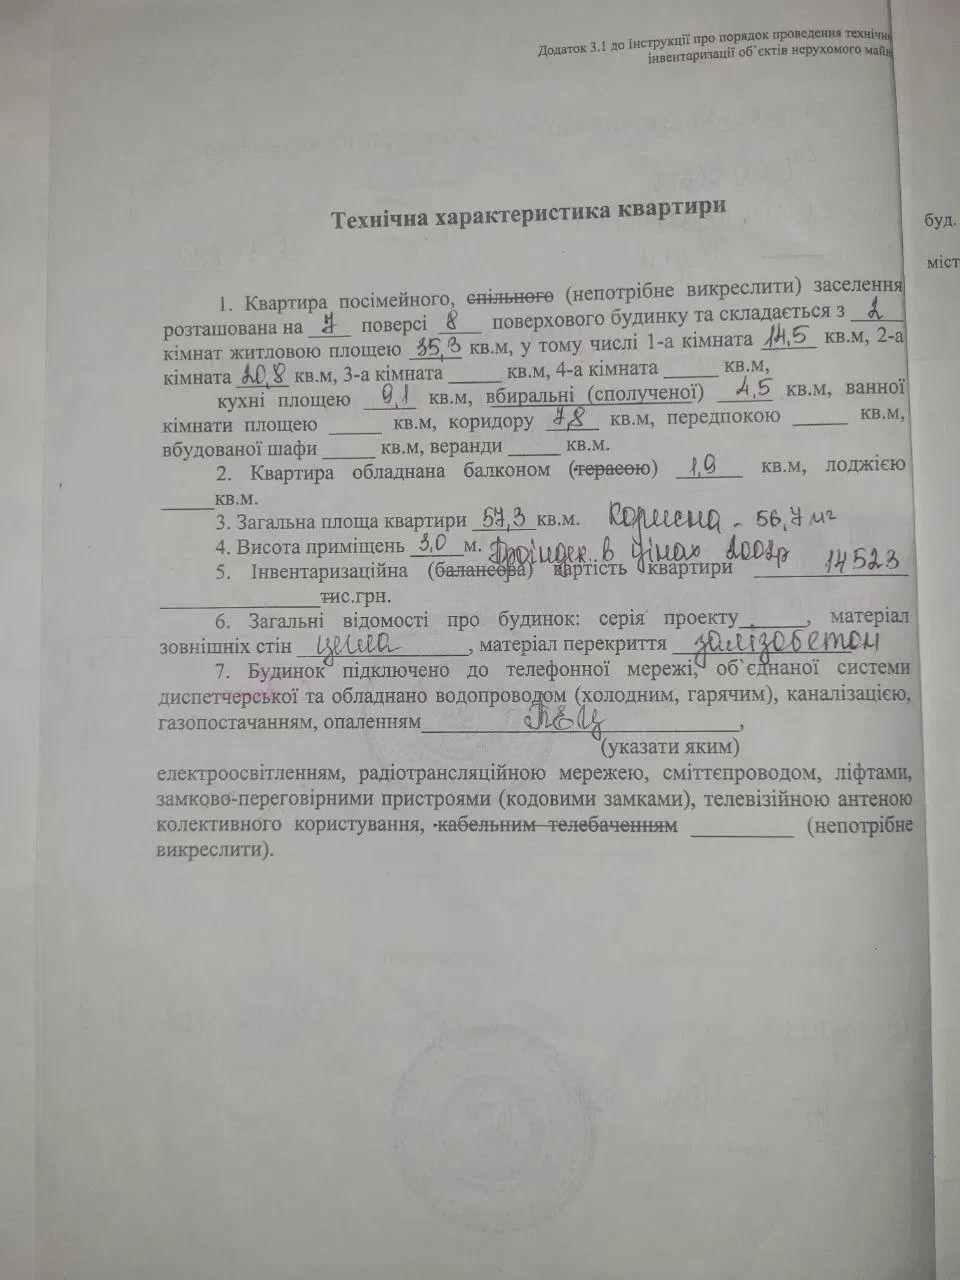 Додаток 3.1 до Інструкції про порядок проведення технічн
інвентаризації об`єктів нерухомого майн
Технічна характеристика квартири
буд.
міст
1. Квартира посімейного, спільного (непотрібне викреслити) заселення
розташована на 7 поверсі 8 поверхового будинку та складається з 2
кімнат житловою площею 35,3 кв.м, у тому числі 1-а кімната 14,5 кв.м, 2-а
кімната 20,8 кв.м, 3-а кімната ______ кв.м, 4-а кімната ______ кв.м,
кухні площею 9,1 кв.м, вбиральні (сполученої) 4,5 кв.м, ванної
кімнати площею ______ кв.м, коридору 7,8 кв.м, передпокою ______ кв.м,
вбудованої шафи ______ кв.м, веранди ______ кв.м.
2. Квартира обладнана балконом (терасою) 1,9 кв.м, лоджією
______кв.м.
3. Загальна площа квартири 57,3 кв.м. Корисна - 56,7 м²
4. Висота приміщень 3,0 м. Проіндек. в цінах 2002р
5. Інвентаризаційна (балансова) вартість квартири 14523
__________________тис.грн.
6. Загальні відомості про будинок: серія проекту______, матеріал
зовнішніх стін цегла, матеріал перекриття залізобетон
7. Будинок підключено до телефонної мережі, об`єднаної системи
диспетчерської та обладнано водопроводом (холодним, гарячим), каналізацією,
газопостачанням, опаленням ТЕЦ,
(указати яким)
електроосвітленням, радіотрансляційною мережею, сміттєпроводом, ліфтами,
замково-переговірними пристроями (кодовими замками), телевізійною антеною
колективного користування, кабельним телебаченням __________ (непотрібне
викреслити).